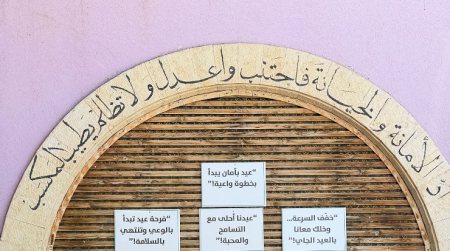 دِ الأمانة والخيانة فاجتنب واعدل ولا تظلم يطيب المكسب
"عيد بأمان يبدأ
بخطوة واعية!"
"خفف السرعة...
وخلك معانا
بالعيد الجاي!"
"عيدنا أحلى مع
التسامح
والمحبة!"
"فرحة عيد تبدأ
بالوعي وتنتهي
بالسلامة!"